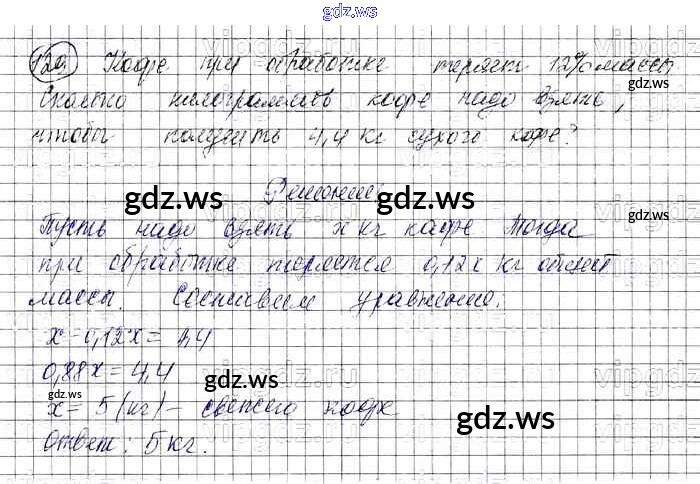 gdz.ws
129) Кофе при обработке теряет 12% массы
Сколько килограммов кофе надо взять,
чтобы получить 4,4 кг сухого кофе?
Решение.
Пусть надо взять x кг кофе Тогда
при обработке теряется 0,12x кг
массы. Составим уравнение.
x - 0,12x = 4,4
0,88x = 4,4
x = 5 (кг) - свежего кофе
Ответ: 5 кг.
gdz.ws
gdz.ws
gdz.ws
gdz.ws
gdz.ws
gdz.ws
gdz.ws